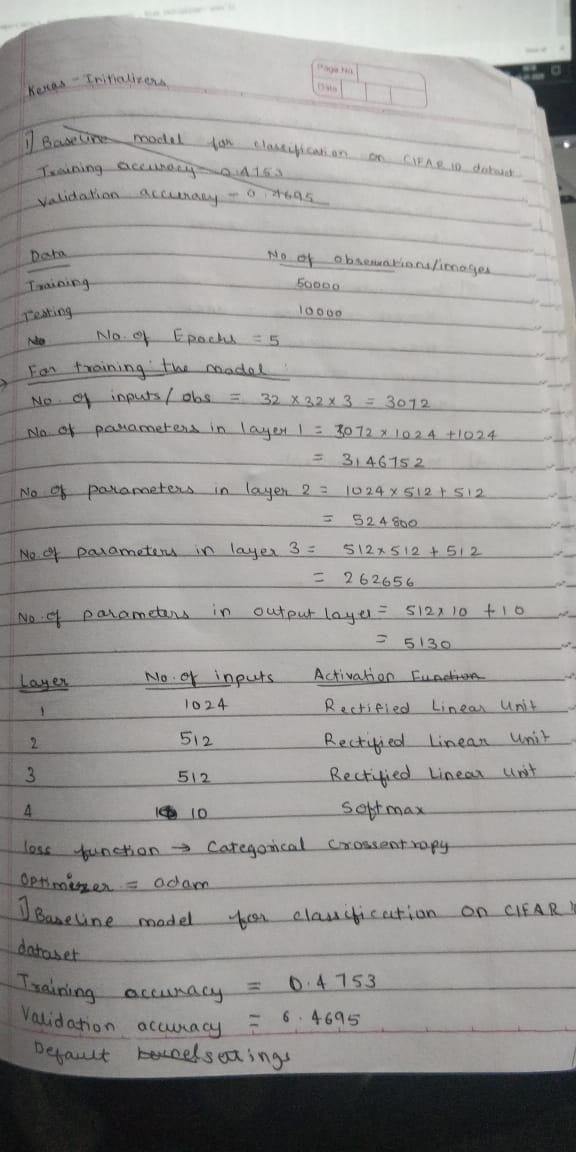 Page No.
Date
Keras - Initializers
1) Baseline model for classification on CIFAR 10 dataset
Training accuracy - 0.4753
Validation accuracy - 0.4695
Data No of observations/images
Training 50000
Testing 10000
No No. of Epochs = 5
→ For training the model :
No. of inputs / obs = 32 x 32 x 3 = 3072
No of parameters in layer 1 = 3072 x 1024 + 1024
= 3146752
No of parameters in layer 2 = 1024 x 512 + 512
= 524800
No of parameters in layer 3 = 512 x 512 + 512
= 262656
No. of parameters in output layer = 512 x 10 + 10
= 5130
Layer No. of inputs Activation Function
1 1024 Rectified Linear Unit
2 512 Rectified Linear Unit
3 512 Rectified Linear Unit
4 10 Softmax
loss function → Categorical Crossentropy
Optimizer = adam
1) Baseline model for classification on CIFAR
dataset
Training accuracy = 0.4753
Validation accuracy = 0.4695
Default kernel settings